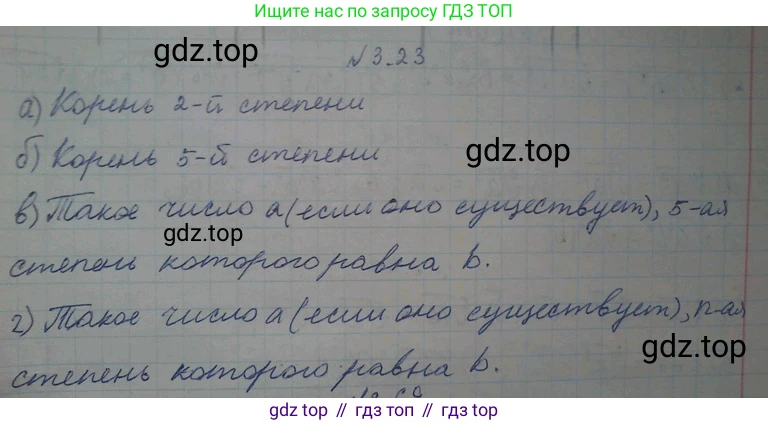 Ищите нас по запросу ГДЗ ТОП
gdz.top
№3.23
а) Корень 2-й степени
б) Корень 5-й степени
gdz.top
в) Такое число a (если оно существует), 5-ая
gdz.top
степень которого равна b.
г) Такое число a (если оно существует), n-ая
gdz.top
степень которого равна b.
gdz top // гдз топ // gdz top